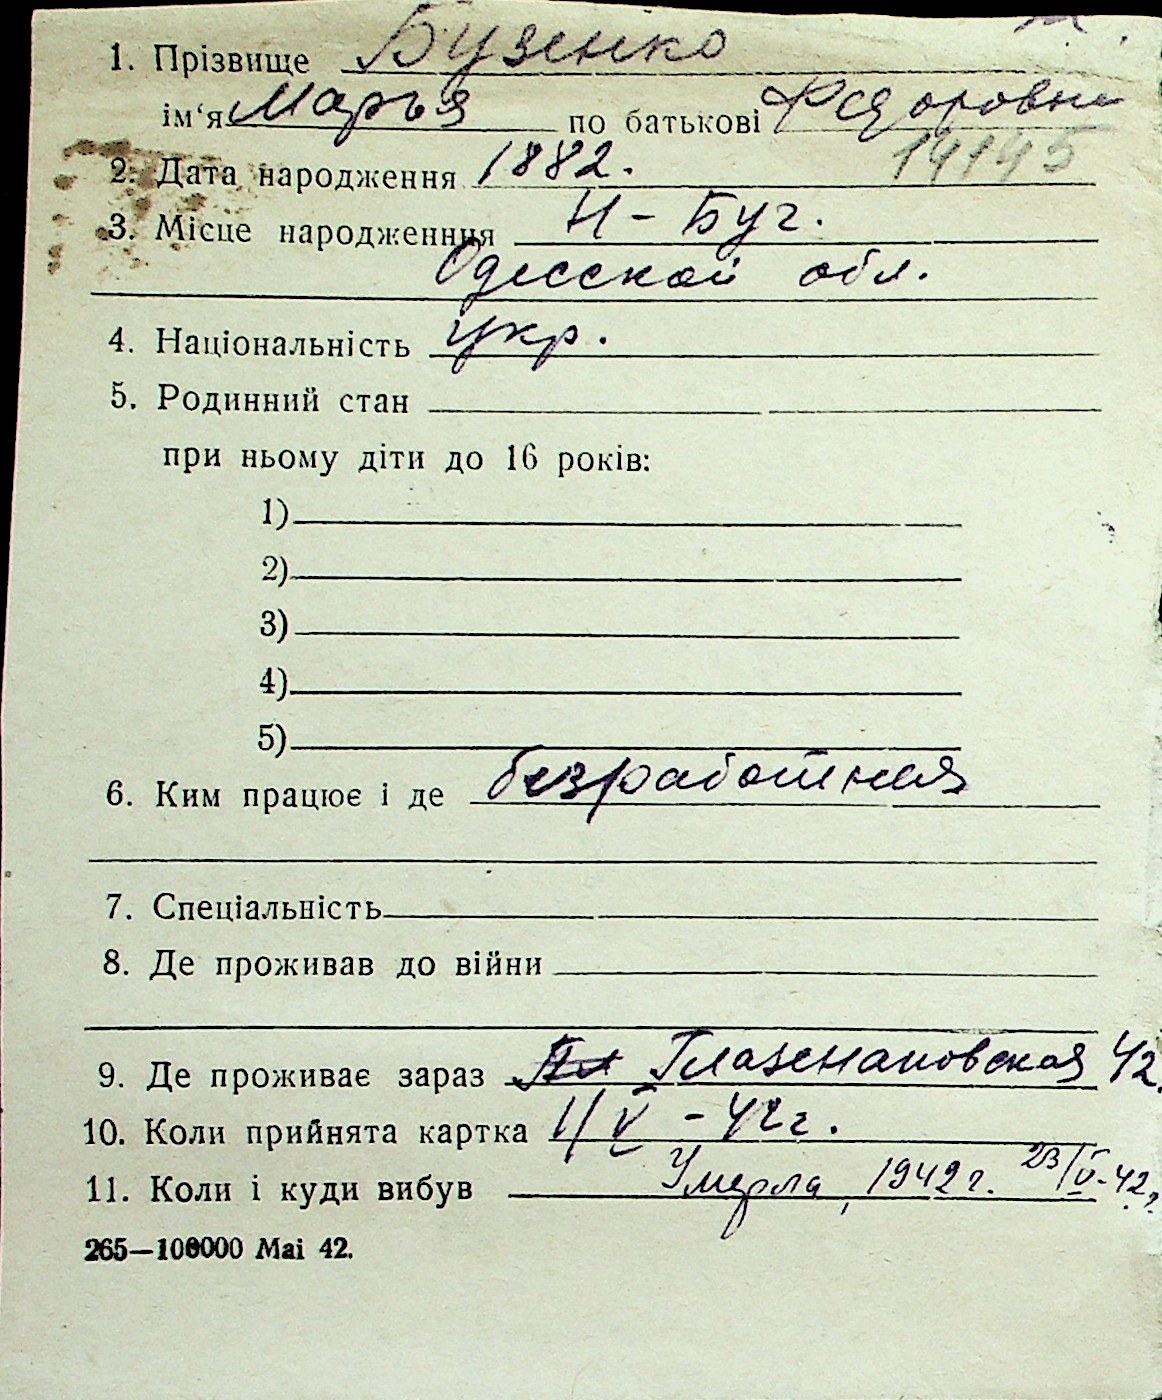 1. Прізвище Бузенко
ім‘я Марья по батькові Федоровна
14145
2. Дата народження 1882.
3. Місце народженння Н-Буг.
Одесской обл.
4. Національність укр.
5. Родинний стан
при ньому діти до 16 років:
1)
2)
3)
4)
5)
6. Ким працює і де безработная
7. Спеціальність
8. Де проживав до війни
9. Де проживає зараз Глазенаповская 42.
10. Коли прийнята картка 1/V - 42 г.
11. Коли і куди вибув Умерла, 1942 г. 23/V-42 г.
265—100000 Mai 42.